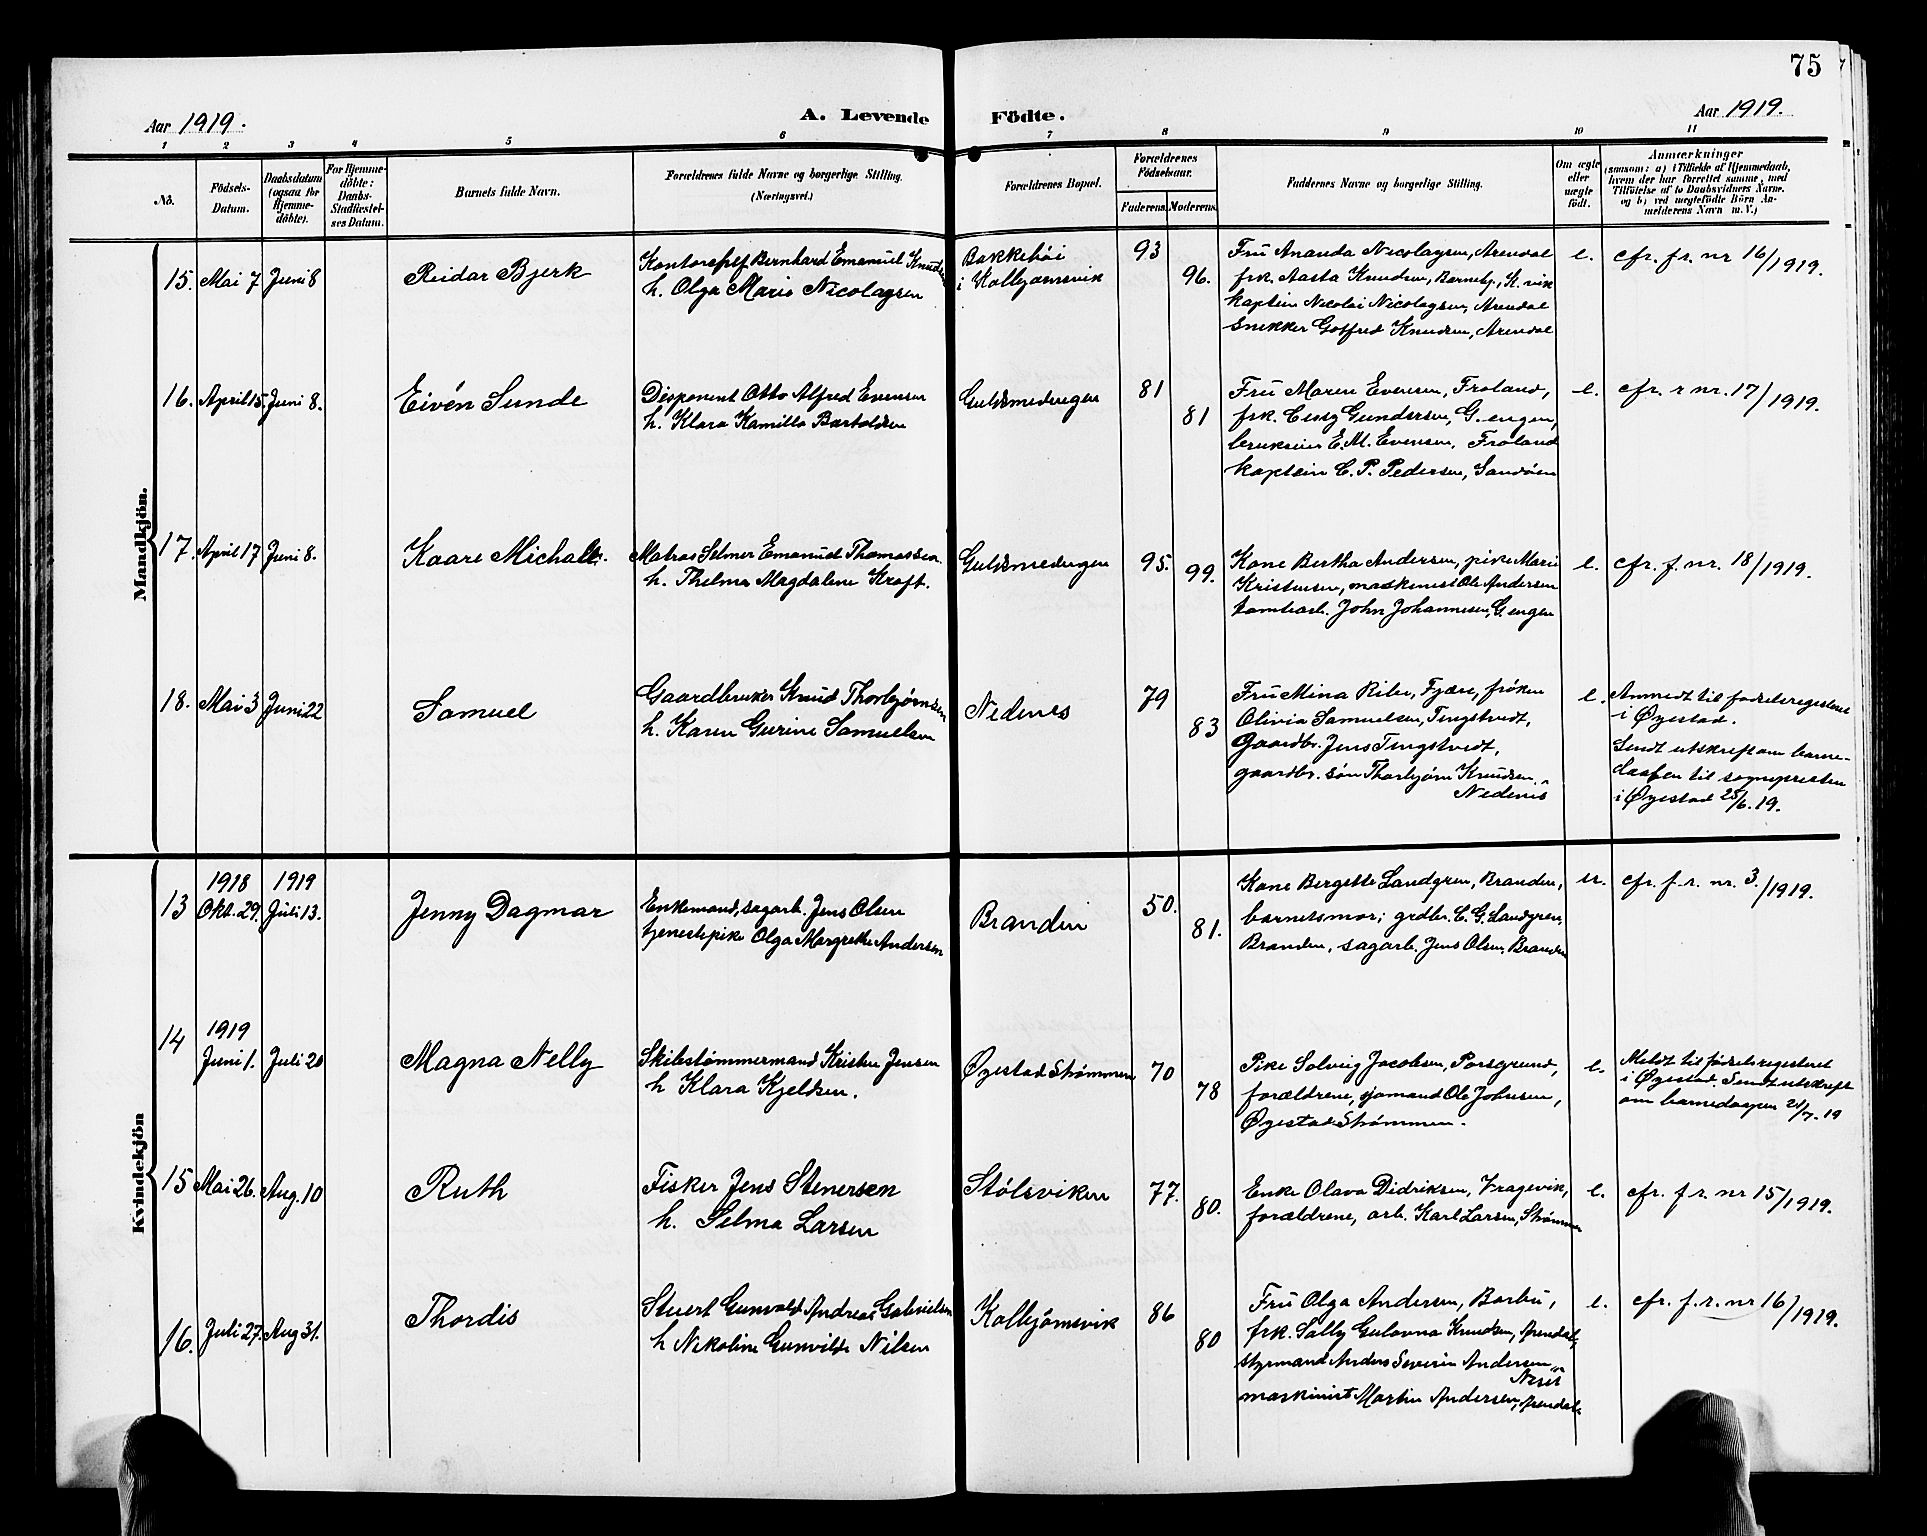 75
Aar 1919.
A. Levende Födte.
Aar 1919.
1 2 3 4 5 6 7 8 9 10 11
No.
Födsels-Datum.
Daabsdatum (ogsaa for Hjemmedöbte).
For Hjemmedöbte: Daabs-Stadfæstelses Datum.
Barnets fulde Navn.
Forældrenes fulde Navne og borgerlige Stilling.
(Næringsvei.)
Forældrenes Bopæl.
Forældrenes Födselsaar.
Faderens. Moderens.
Faddernes Navne og borgerlige Stilling.
Om ægte eller uægte födt.
Anmærkninger
(saasom: a) i Tilfælde af Hjemmedaab, hvem der har forrettet samme, med Tilföielse af to Daabsvidners Navne. og b) ved uægtefödte Börn Anmelderens Navn m. V.)
Mandkjön.
15. Mai 7 Juni 8
Reidar Bjerk
Bernhard Emanuel Knudsen
h. Olga Marie Nicolaysen
Bakkehøi
i Kolbjørnsvik
93
96.
Fru Ananda Nicolaysen, Arendal
frk. Aasta Knudsen, K.vik
kaptein Nicolai Nicolaysen, Arendal
snekker Gotfred Knudsen, Arendal
e.
cfr. fr. nr 16/1919.
16. April 15. Juni 8.
Eivén Sunde
Disponent Otto Alfred Evensen
h. Klara Kamilla Bartoldsen
Guldsmedengen
81
81
Fru Maren Evensen, Froland,
frk. Gundersen, G.engen,
E.M. Evensen, Froland
kaptein C. P. Pedersen, Sandøen
e.
cfr. r nr. 17/1919.
17. April 17 Juni 8.
Kaare Michael.
Matros Selmer Emanuel Thomassen
h. Thelma Magdalene Kroft.
Guldsmedengen
95.
99.
Kone Bertha Andersen, pike Marie
Kristensen, maskinist Ole Andersen
tomtearb. John Johannesen, G.engen
e.
cfr. f. nr. 18/1919.
18. Mai 3 Juni 22
Samuel
Gaardbruker Knud Thorbjørnsen
h. Karen Gurine Samuelsen
Nedenes
79
83
Fru Mina Ribe, Fjære, frøken
Olivia Samuelsen, Tingstvedt,
Gaardbr. Jens Tingstvedt,
gaardbr. søn Thorbjørn Knudsen
Nedenes
e.
Anmeldt til fødselsregisteret
i Øyestad.
Sendt utskrift om barne-
daaben til sognepresten
i Øyestad 25/6.19.
Kvindekjön
13 1918 Okt. 29. 1919 Juli 13.
Jenny Dagmar
Enkemand, sagarb. Jens Olsen
tjenestepike Olga Margrethe Andersen
Branden
50.
81.
Kone Bergette Landgren, Branden,
barnets mor; grdbr. C. G. Landgren,
Branden, sagarb. Jens Olsen, Branden
u.
cfr. f. r. nr. 3./1919.
14 1919 Juni 1. Juli 20
Magna Nelly
Skibstømmermand Kristen Jensen
h Klara Kjeldsen.
Øyestad Strømmen
70
78
Pike Solveig Jacobsen, Porsgrund,
forældrene, sjømand Ole Johnsen,
Øyestad Strømmen.
e.
Meldt til fødselsregisteret
i Øyestad. Sendt utskrift
om barnedaapen 21/7.19
15 Mai 26. Aug. 10
Ruth
Fisker Jens Stenersen
h. Selma Larsen
Stølsviken
77.
80.
Enke Olava Didriksen, Vragevik,
forældrene, arb. Karl Larsen, Strømmen
e.
cfr. f r. nr 15/1919.
16. Juli 27. Aug 31.
Thordis
Stuert Gunvald Andreas Gabrielsen
h Nikoline Gunvilde Nilsen
Kolbjørnsvik
86
80
Fru Olga Andersen, Barbu,
frk. Sally Gulovna Knudsen, Arendal,
styrmand Anders Severin Andersen
maskinist Martin Andersen, Arendal.
e.
cfr. f. r. nr 16/1919.